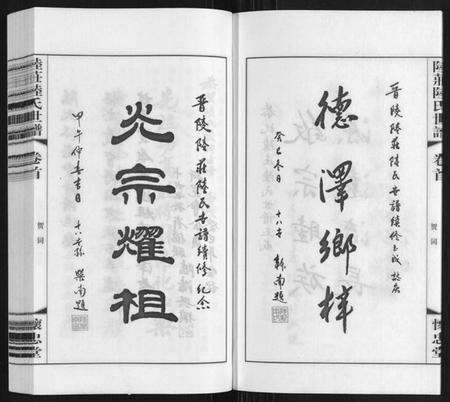 陸莊陸氏世譜
卷首
賀詞
懷忠堂
晋陵陸莊陸氏世譜續修告成 誌庆
德澤鄉梓
癸巳冬月 十八世
南題
晋陵陸莊陸氏世譜續修紀念
光宗耀祖
甲午仲春吉日 十八世孫
南題
陸莊陸氏世譜
卷首
賀詞